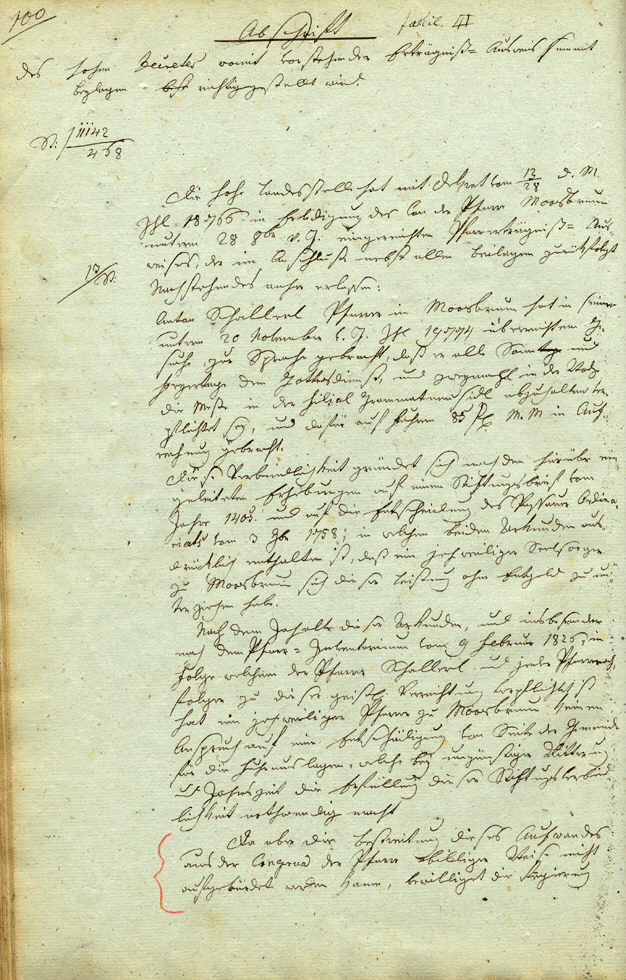 100
Abschrift
fascic. III
des hohen Decretes womit vorstehender Erträgniß-Ausweis sammt
Beylagen richtiggestellt wird.
N: 11142
468
Die hohe Landesstelle hat mit Dekret vom 13/28 d. M.
Zhl. 18766 in Erledigung des von der Pfarre Moosbrunn
unterm 28 8ber v. J. eingereichten Pfarrerträgniß-Aus-
weises, der im Anschluße nebst allen Beilagen zurückfolgt
Nachstehendes anher erlassen:
Anton Schallerl Pfarrer in Moosbrunn hat in seinem
unterm 20 November v. J. Zhl überreichten Ge-
suche zur Sprache gebracht, daß er alle Sonntag und
Feyertage den Gottesdienst, und zweymahl in der Woche
die Messe in der Filial Grammatneusiedl abzuhalten ver-
pflichtet sey, und dafür auf Fuhren 85 fl M. M in Auf-
rechnung gebracht.
Diese Verbindlichkeit gründet sich nach den hierüber ein-
geleiteten Erhebungen auf einen Stiftungsbrief vom
Jahre 1405 und auf die Entscheidung des Passauer Ordina-
riats vom 3 1758, in welchen beiden Urkunden aus-
drücklich enthalten ist, daß ein jeweiliger Seelsorger
zu Moosbrunn sich dieser Leistung ohne Entgeld zu un-
terziehen habe.
Nach dem Inhalte dieser Urkunden, und insbesondere
nach dem Pfarr-Inventarium vom 9 Februar 1826, in
Folge welchem der Pfarrer Schallerl und jeder Pfarrnach-
folger zu dieser geistl. Verrichtung verpflichtet ist
hat ein jeweiliger Pfarrer zu Moosbrunn keinen
Anspruch auf eine Entschädigung von Seite der Gemeinde
für die Fuhrauslagen, welche bey ungünstiger Witterung
und Jahreszeit die Erfüllung dieser Stiftungsverbind-
lichkeit nothwendig macht
Da aber die Bestreitung dieses Aufwandes
aus der Congrua der Pfarre billiger Weise nicht
aufgebürdet werden kann, bewilliget die Regierung